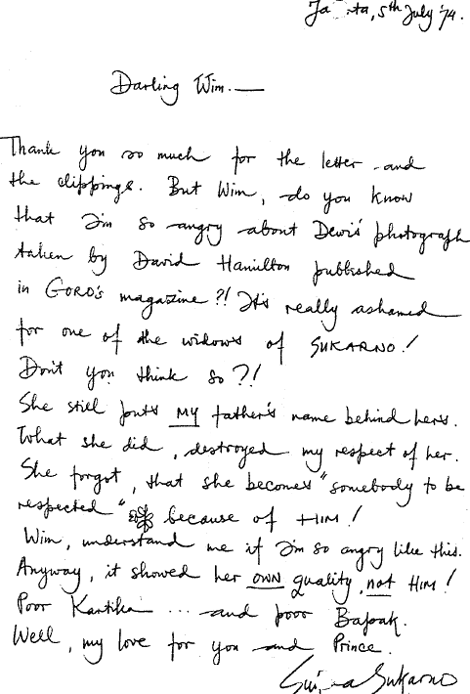 5th July '74.
Darling Wim.—
Thank you so much for the letter and
the clippings. But Wim, do you know
that I'm so angry about Dewi's photograph
taken by David Hamilton published
in GORO's magazine?! It's really ashamed
for one of the widows of SUKARNO!
Don't you think so?!
She still puts MY father's name behind hers.
What she did, destroyed my respect of her.
She forgot, that she becomes "somebody to be
respected" because of HIM!
Wim, understand me if I'm so angry like this.
Anyway, it showed her OWN quality, not HIM!
Poor Kartika ... and poor Bapak.
Well, my love for you and Prince.
Sukarno